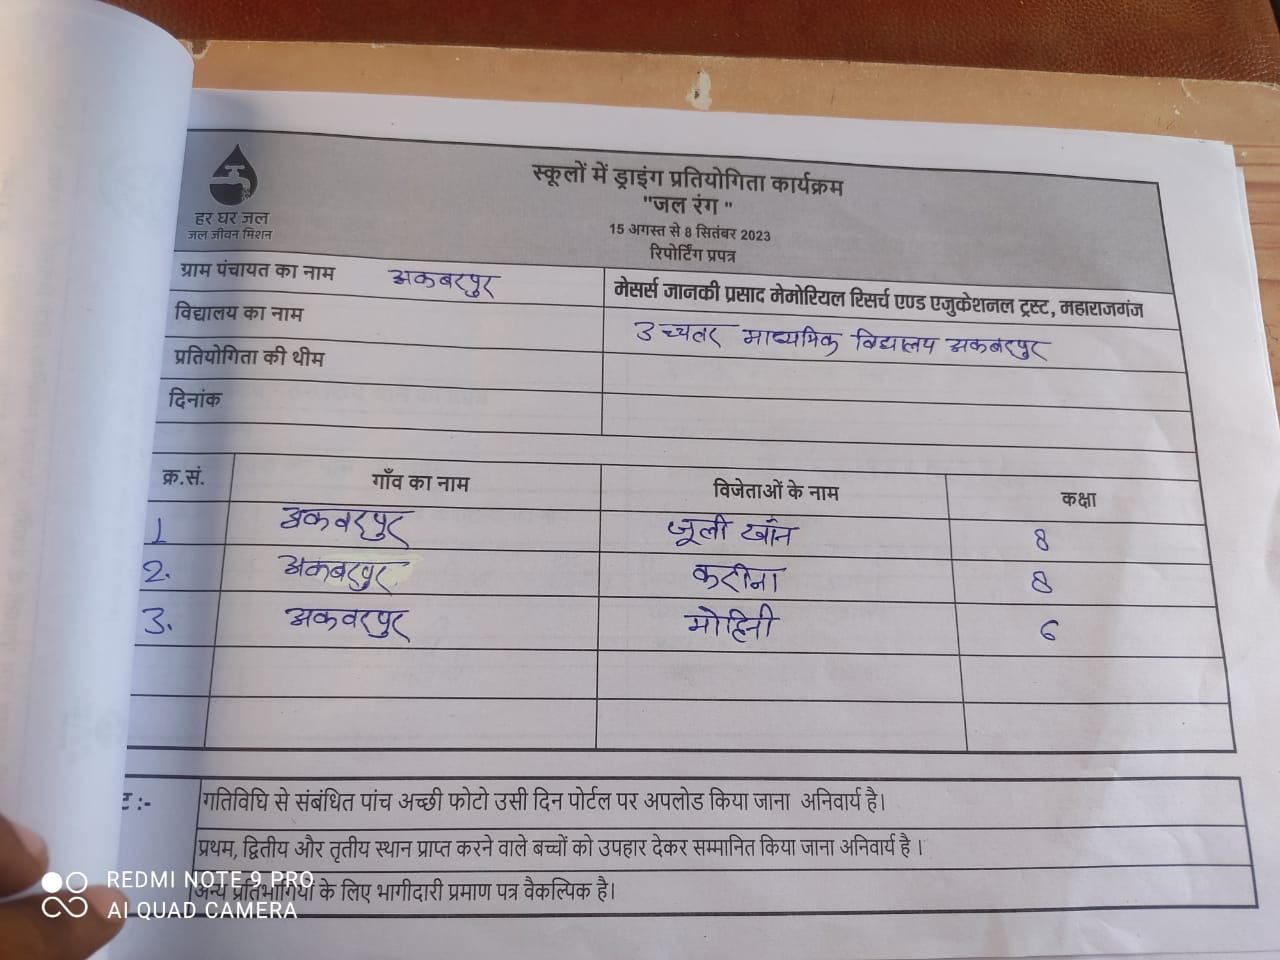 हर घर जल
जल जीवन मिशन
स्कूलों में ड्राइंग प्रतियोगिता कार्यक्रम
"जल रंग "
15 अगस्त से 8 सितंबर 2023
रिपोर्टिंग प्रपत्र
ग्राम पंचायत का नाम अकबरपुर मेसर्स जानकी प्रसाद मेमोरियल रिसर्च एण्ड एजुकेशनल ट्रस्ट, महाराजगंज
विद्यालय का नाम उच्चतर माध्यमिक विद्यालय अकबरपुर
प्रतियोगिता की थीम
दिनांक
क्र.सं. गाँव का नाम विजेताओं के नाम कक्षा
1 अकबरपुर जूली खाँन 8
2. अकबरपुर करीना 8
3. अकबरपुर मोहिनी 6
ट :- गतिविधि से संबंधित पांच अच्छी फोटो उसी दिन पोर्टल पर अपलोड किया जाना अनिवार्य है।
प्रथम, द्वितीय और तृतीय स्थान प्राप्त करने वाले बच्चों को उपहार देकर सम्मानित किया जाना अनिवार्य है ।
अन्य प्रतिभागियों के लिए भागीदारी प्रमाण पत्र वैकल्पिक है।
REDMI NOTE 9 PRO
AI QUAD CAMERA